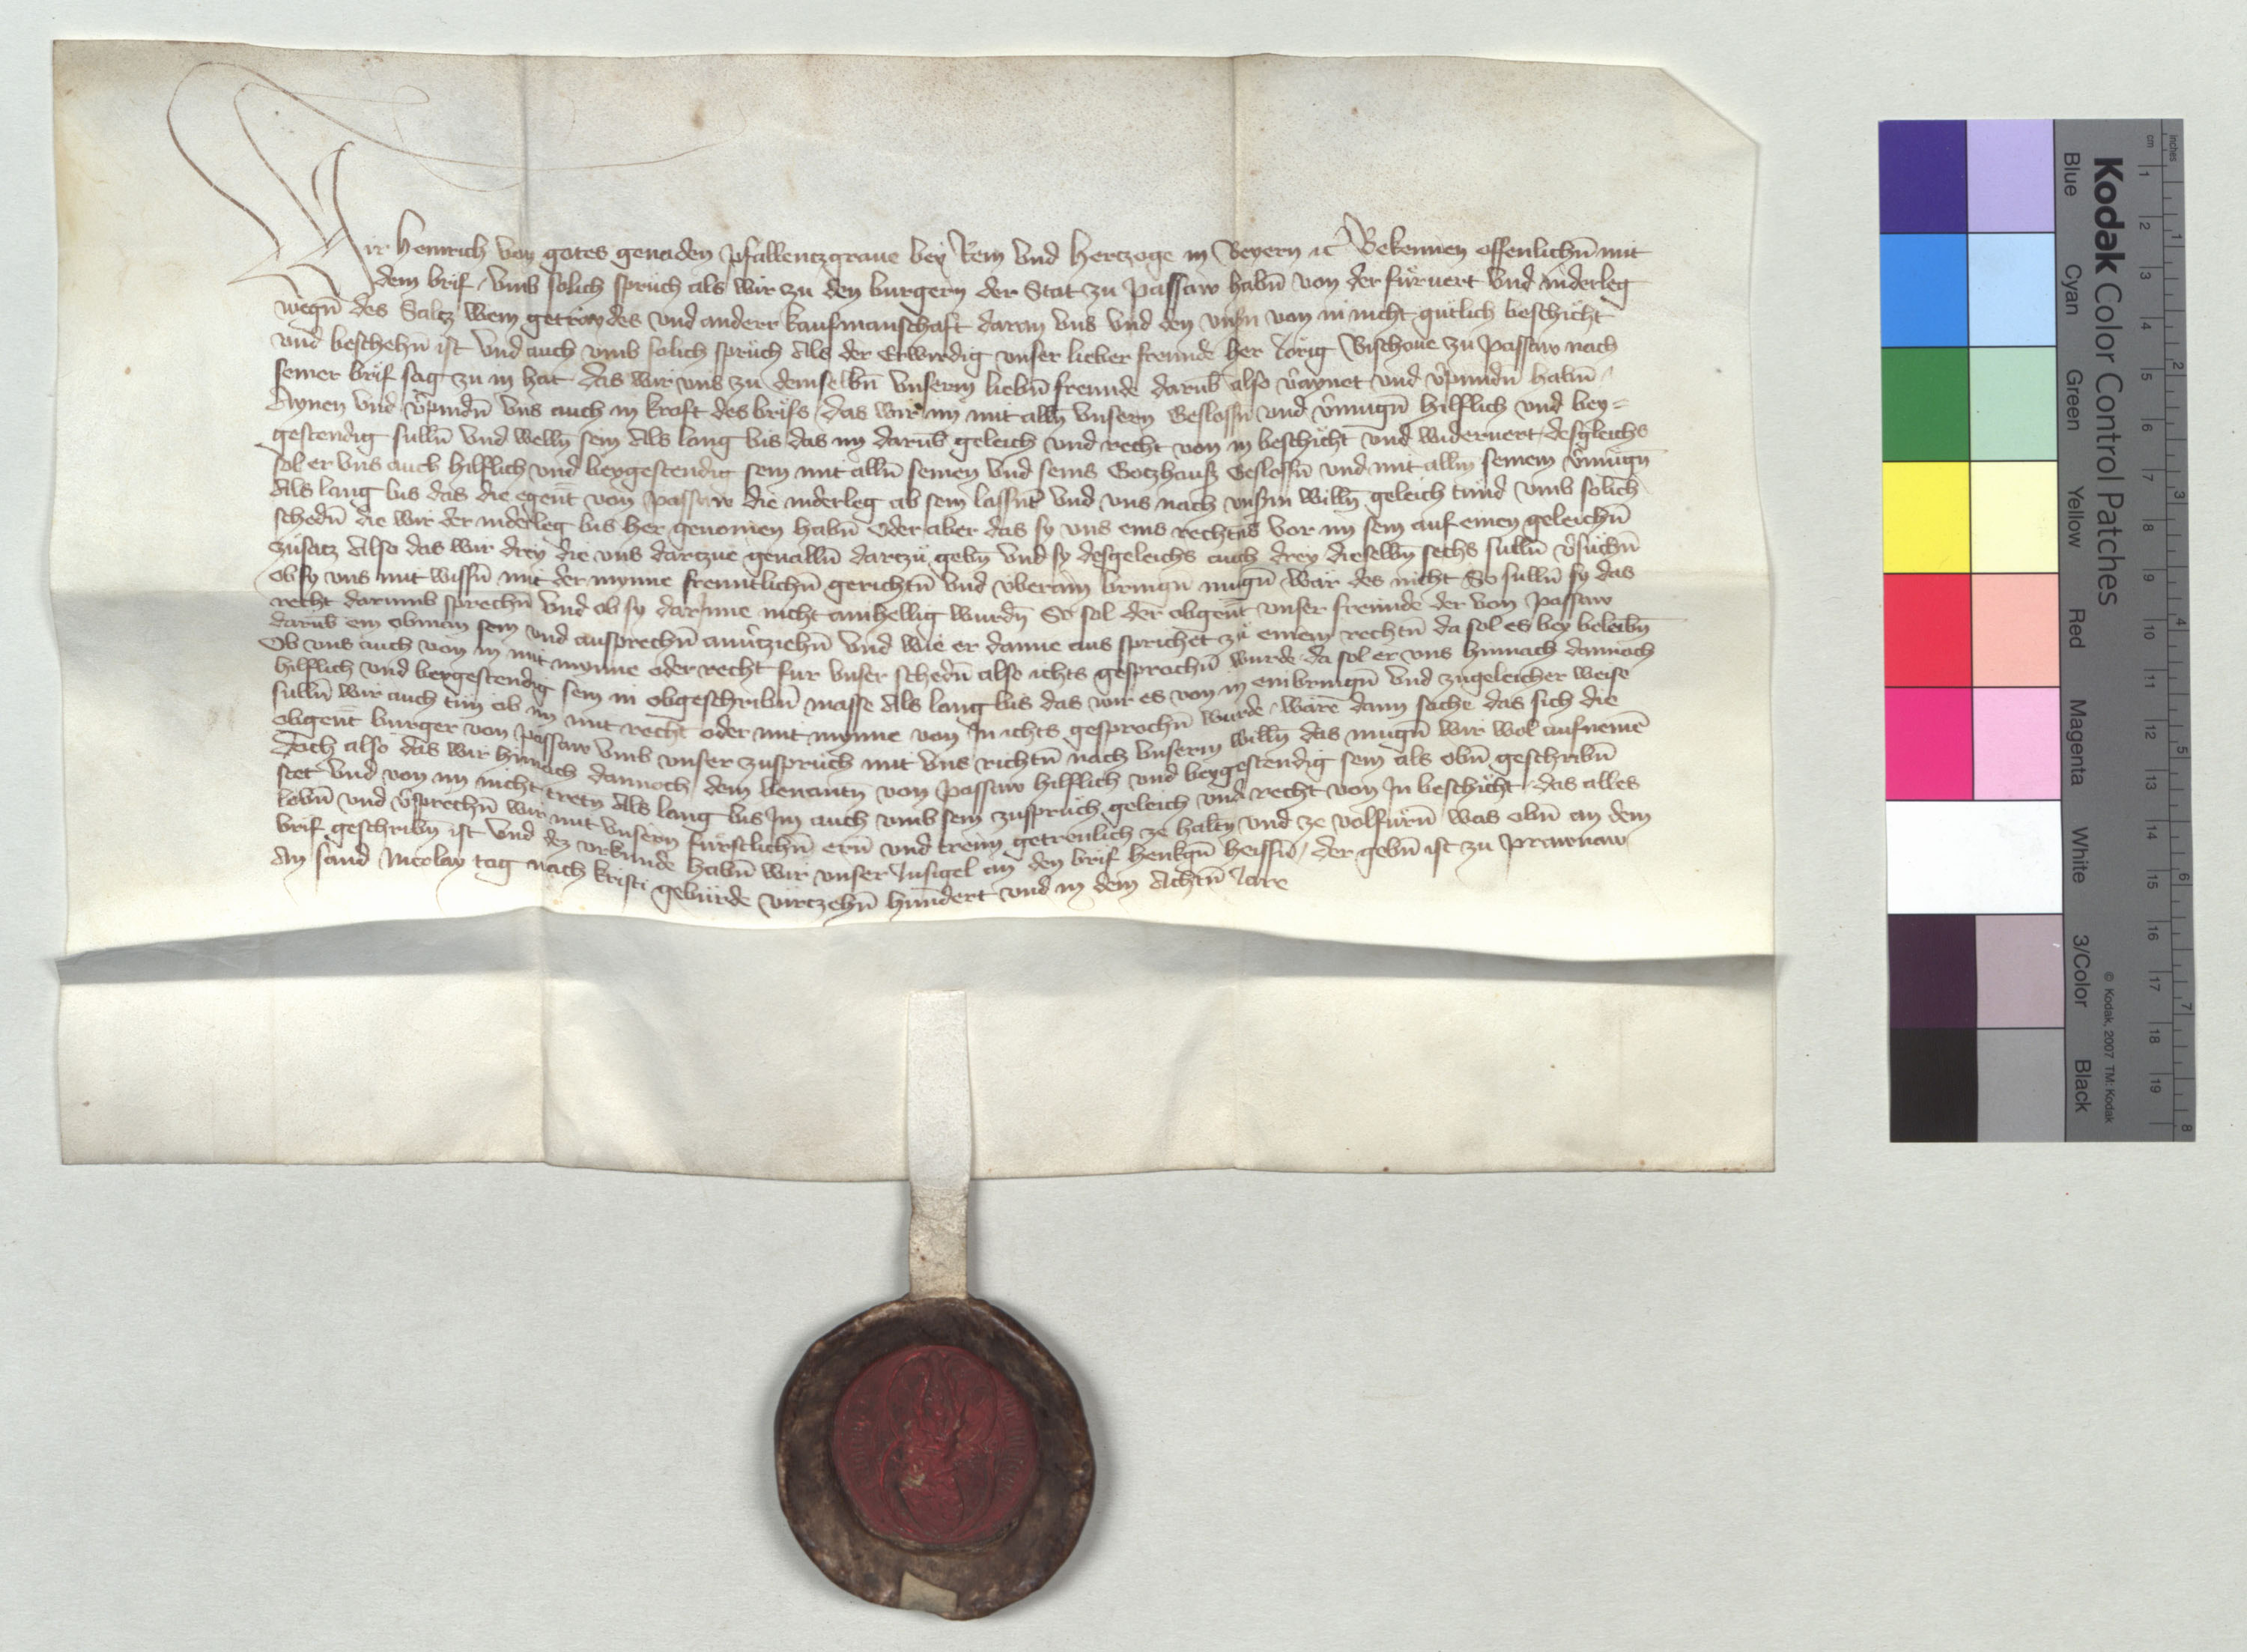 Wir Heinrich von gotes genaden Pfallentzgraue bey Rein vnd Hertzoge in Beyern ꝛc Bekennen offenlichn̄ mit
dem brif vmb solich sprüch als wir zu den burgern der Stat zu Passaw habn̄ von der füruert vnd niderleg
wegn̄ des Saltz Wein getraydes vnd anderr kaufmanschaft daran vns vnd den vnsn̄ von in nicht gütlich beschicht
vnd beschehn̄ ist vnd auch vmb solich sprüch Als der Erwirdig vnser lieber freunde her Jörig Bischoue zu Passaw nach
seiner brif sag zu in hat das wir vns zu demselbn̄ vnserm liebn̄ freunde darūb also v̄aynet vnd v̄pundn̄ habn̄
Aynen vnd v̄pindn̄ vns auch in kraft des brifs das wir im mit alln̄ vnsern Geslossn̄ vnd v̄mugn̄ hilflich vnd bey=
gestendig sulln̄ vnd welln̄ sein Als lang bis das im darūb geleich vnd recht von in beschicht vnd wideruert desgleichs
sol er vns auch hilflich vnd beygestendig sein mit alln̄ seinen vnd seins Gotzhauß Geslossn̄ vnd mit allm seinem v̄mugn̄
Als lang bis das die egen̄t von Passaw die niderleg ab sein lassn̄t vnd vns nach vnßm willn̄ geleich tund vmb solich
schedn̄ die wir der niderleg bis her genomen habn̄ Oder aber das sy vns eins rechtns vor im sein auf einen geleichn̄
zusatz Also das wir drey die vns dartzue geualln̄ dartzu gebn̄ vnd sy desgeleichs auch drey dieselbn̄ sechs sulln̄ v̄suchn̄
ob sy vns mit wissn̄ mit der mynne freuntlichn̄ gerichtn̄ vnd vberain bringn̄ mugn̄ wär des nicht So sulln̄ sy das
recht darumb sprechn̄ vnd ob sy darjnne nicht ainhellig wurdn̄ So sol der obgen̄t vnser freunde der von Passaw
darūb ein obman sein vnd aussprechn̄ an v̄tziehn̄ vnd wie er danne aus sprichet zu einem rechtn̄ da sol es bey beleibn̄
Ob vns auch von in mit mynne oder recht für vnser schedn̄ also ichts gesprochn̄ wurde da sol er vns hinnach dannoch
hilflich vnd beygestendig sein in obgeschribn̄ masse Als lang bis das wir es von in einbringn̄ vnd zugeleicher weise
sulln̄ wir auch tun ob im mit recht oder mit mynne von Jn ichts gesprochn̄ wurde wäre dann sache das sich die
obgen̄t burger von Passaw vmb vnser zusprüch mit vns richtn̄ nach vnserm willn̄ das mugn̄ wir wol aufnemē
Doch also das wir hinnach dannoch dem benantn̄ von Passaw hilflich vnd beygestendig sein als obn̄ geschribn̄
stet vnd von im nicht tretn̄ Als lang bis Jm auch vmb sein zusprüch geleich vnd recht von Jn beschicht das alles
lobn̄ vnd v̄sprechn̄ wir mit vnsern fürstlichn̄ ern̄ vnd trewn getreulich ze haltn̄ vnd ze volfürn̄ was obn̄ an dem
brif geschribn̄ ist vnd dez vrkunde habn̄ wir vnser Insigel an den brif henkgn̄ heissn̄ der gebn̄ ist zu Prawnaw
An sand Nicolay tag nach kristi gebürde virtzehn̄ hundert vnd in dem Achtn̄ Jare
Kodak Color Control Patches
Blue Cyan Green Yellow Red Magenta White 3/Color Black
© Kodak, 2007 TM: Kodak
cm 1 2 3 4 5 6 7 8 9 10 11 12 13 14 15 16 17 18 19
inches 1 2 3 4 5 6 7 8